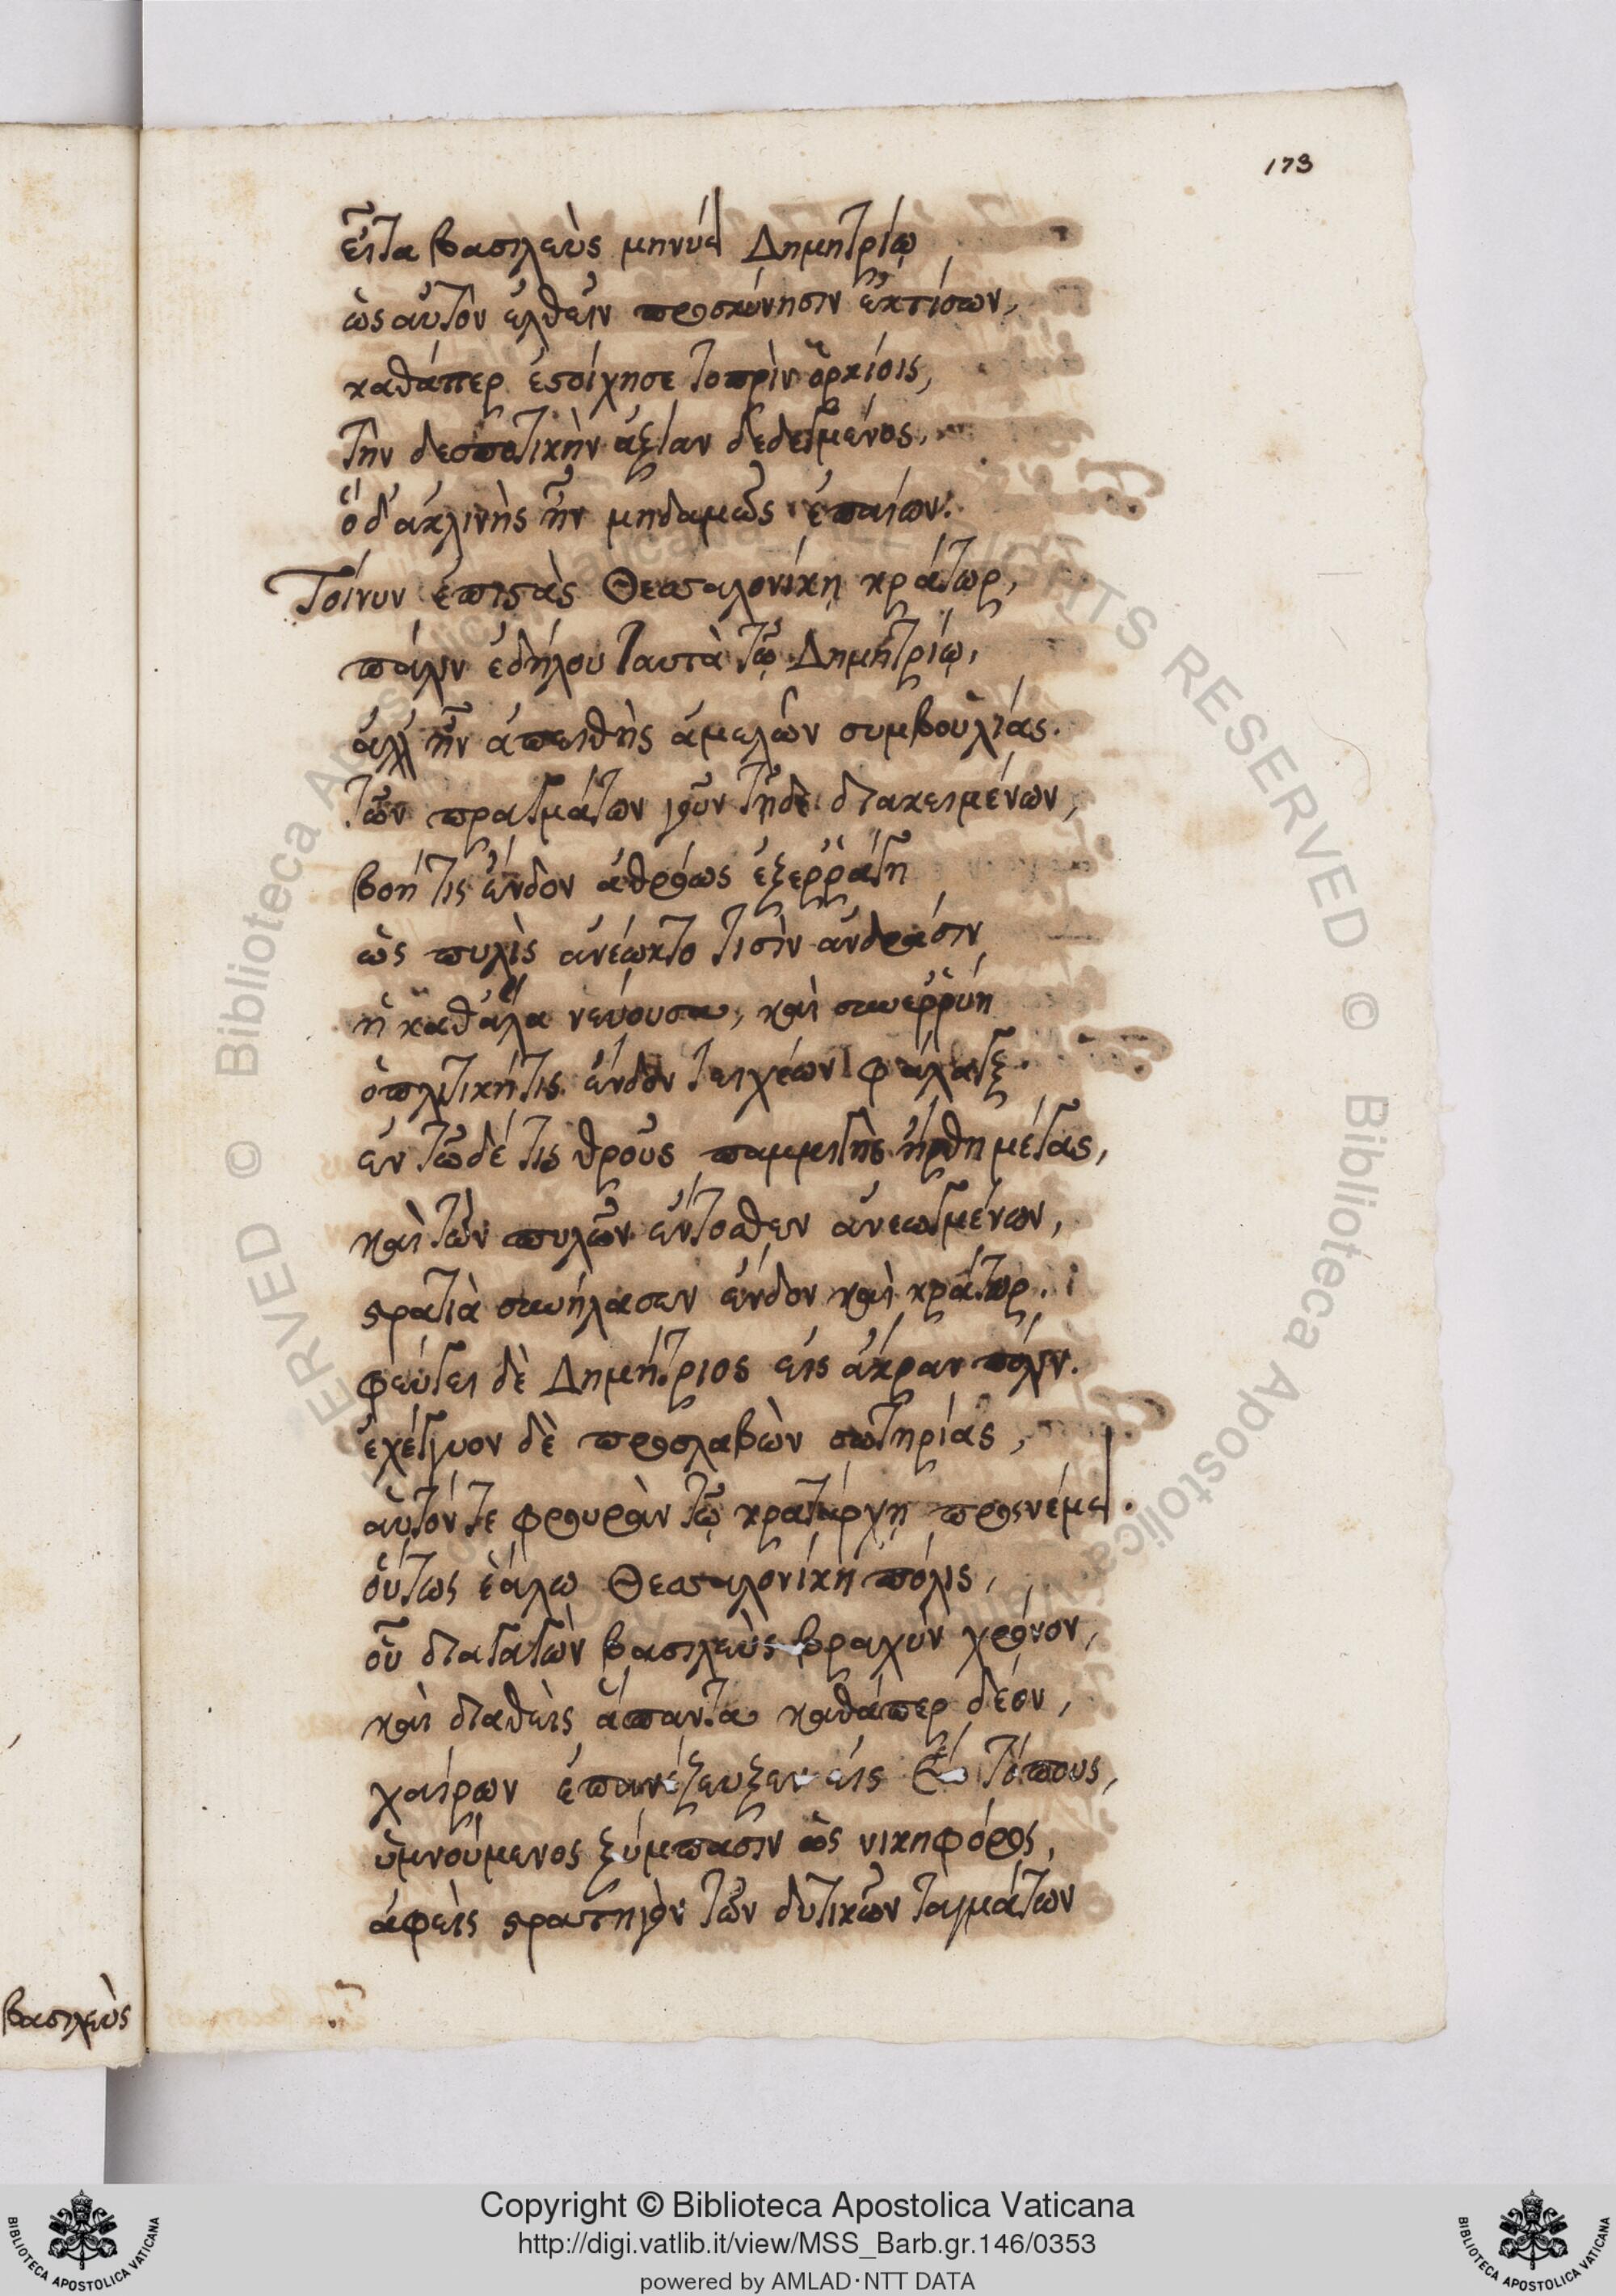 173
εἶτα βασιλεὺς μηνύει Δημητρίῳ
ὡς αὐτὸν ἐλθεῖν προσκύνησιν ἐκτίσων,
καθάπερ ἐστοίχησε τοπρὶν ὁρκίοις,
τὴν δεσποτικὴν ἀξίαν δεδεγμένος.
ὁ δ' ἀκλινὴς ἦν μηδαμῶς ἐπαίων.
Τοίνυν ἐπιστὰς Θεσσαλονίκῃ κράτωρ,
πάλιν ἐδήλου ταυτὰ τῷ Δημητρίῳ,
ἀλλ' ἦν ἀπειθὴς ἀμελῶν συμβουλίας.
τῶν πραγμάτων γοῦν τῇδε διακειμένων,
βοή τις ἔνδον ἀθρόως ἐξερράγη
ὡς πυλὶς ἀνέωκτο τισὶν ἀνδράσιν
ἡ καθ' ἅλα νεύουσα, καὶ συνερρύη
ὁπλιτική τις ἔνδον τειχέων φάλαγξ.
ἐν τῷδέ τις θροῦς παμμιγὴς ἤρθη μέγας,
καὶ τῶν πυλῶν ἔντοσθεν ἀνεωγμένων,
στρατιὰ συνήλασεν ἔνδον καὶ κράτωρ.
φεύγει δὲ Δημήτριος εἰς ἄκραν πόλιν.
ἐχέγγυον δὲ προσλαβὼν σωτηρίας,
αὐτόν τε φρουρὰν τῷ κρατάρχῃ προσνέμει.
οὕτως ἑάλω Θεσσαλονίκη πόλις,
οὗ διαγαγὼν βασιλεὺς βραχὺν χρόνον,
καὶ διαθεὶς ἅπαντα καθάπερ δέον,
χαίρων ἐπανέζευξεν εἰς ἕω τόπους,
ὑμνούμενος ξύμπασιν ὡς νικηφόρος,
ἀφεὶς στρατηγὸν τῶν δυτικῶν ταγμάτων
βασιλεὺς
Copyright © Biblioteca Apostolica Vaticana
http://digi.vatlib.it/view/MSS_Barb.gr.146/0353
powered by AMLAD·NTT DATA
BIBLIOTECA APOSTOLICA VATICANA
BIBLIOTECA APOSTOLICA VATICANA